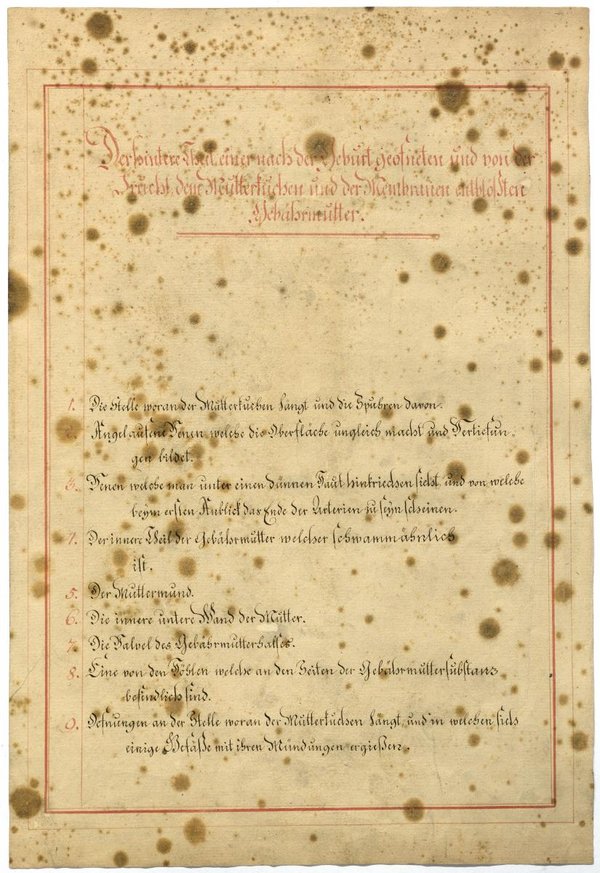 Der hintere Theil einer nach der Geburt geöfneten und von der
Frucht, dem Mutterkuchen und der Membranen entblößten
Gebährmutter.
1. Die Stelle woran der Mutterkuchen hangt und die Spuhren davon.
2. Angelaufene Venen welche die Oberfläche ungleich macht und Vertiefun-
gen bildet.
3. Venen welche man unter einen dünnen Haut hintriechen sieht, und von welche
beym ersten Anblick das Ende der Arterien zu seyn scheinen.
4. Der innere Teil der Gebährmutter welcher schwammähnlich
ist.
5. Der Muttermund.
6. Die innere untere Wand der Mutter.
7. Die Valvel des Gebährmutterhalses.
8. Eine von den Höhlen welche an den Seiten der Gebährmuttersubstanz
befindlich sind.
9. Oefnungen an der Stelle woran der Mutterkuchen hangt, und in welchen sich
einige Gefäße mit ihren Mündungen ergießen.